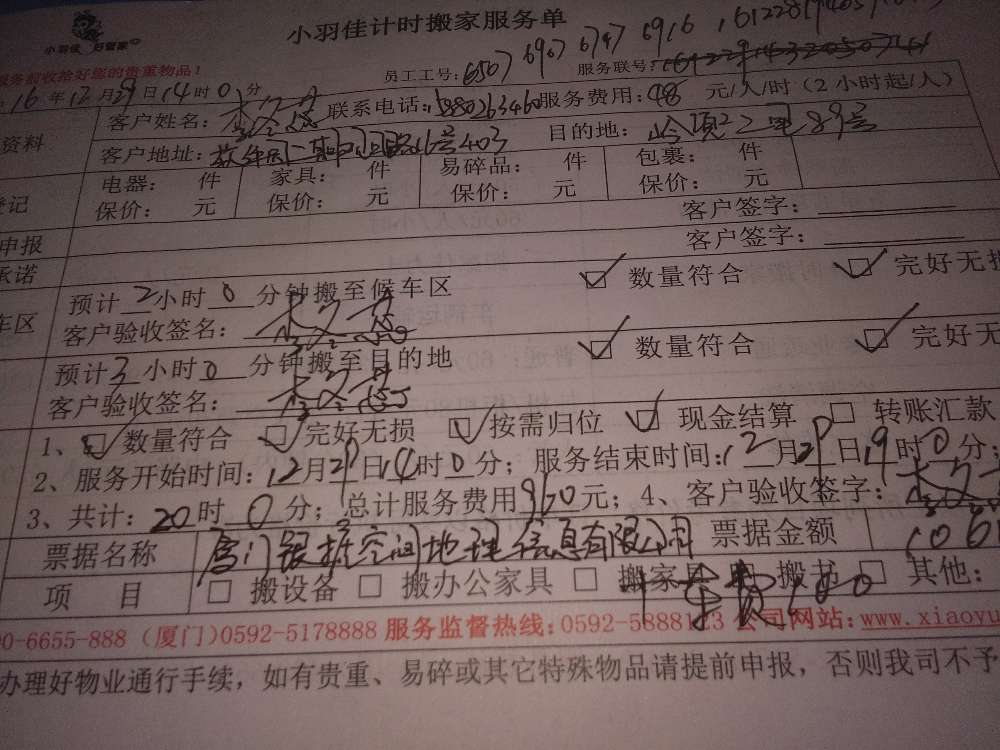 小羽佳计时搬家服务单
小羽佳 好管家
服务前收拾好您的贵重物品!
员工工号: 6507 6907 6747 6916
服务联号:
16年12月29日14时0分
客户姓名: 联系电话: 服务费用: 48 元/人/时(2小时起/人)
资料
客户地址: 16号403 目的地: 岭 2里89号
电器: 件 家具: 件 易碎品: 件 包裹: 件
登记
保价: 元 保价: 元 保价: 元 保价: 元
客户签字:
申报
客户签字:
承诺
预计2小时0分钟搬至候车区 数量符合 完好无损
车区
客户验收签名:
预计3小时0分钟搬至目的地 数量符合 完好无
客户验收签名:
1、 数量符合 完好无损 按需归位 现金结算 转账汇款
2、服务开始时间:12月29日14时0分; 服务结束时间:12月29日19时0分;
3、共计:20时0分; 总计服务费用960元; 4、客户验收签字:
票据名称 厦门银据空间地理信息有限公司 票据金额 106
项 目 搬设备 搬办公家具 搬家具 搬书 其他:
车费100
00-6655-888 (厦门)0592-5178888 服务监督热线:0592-5888123 公司网站:www.xiaoyu
办理好物业通行手续,如有贵重、易碎或其它特殊物品请提前申报,否则我司不予